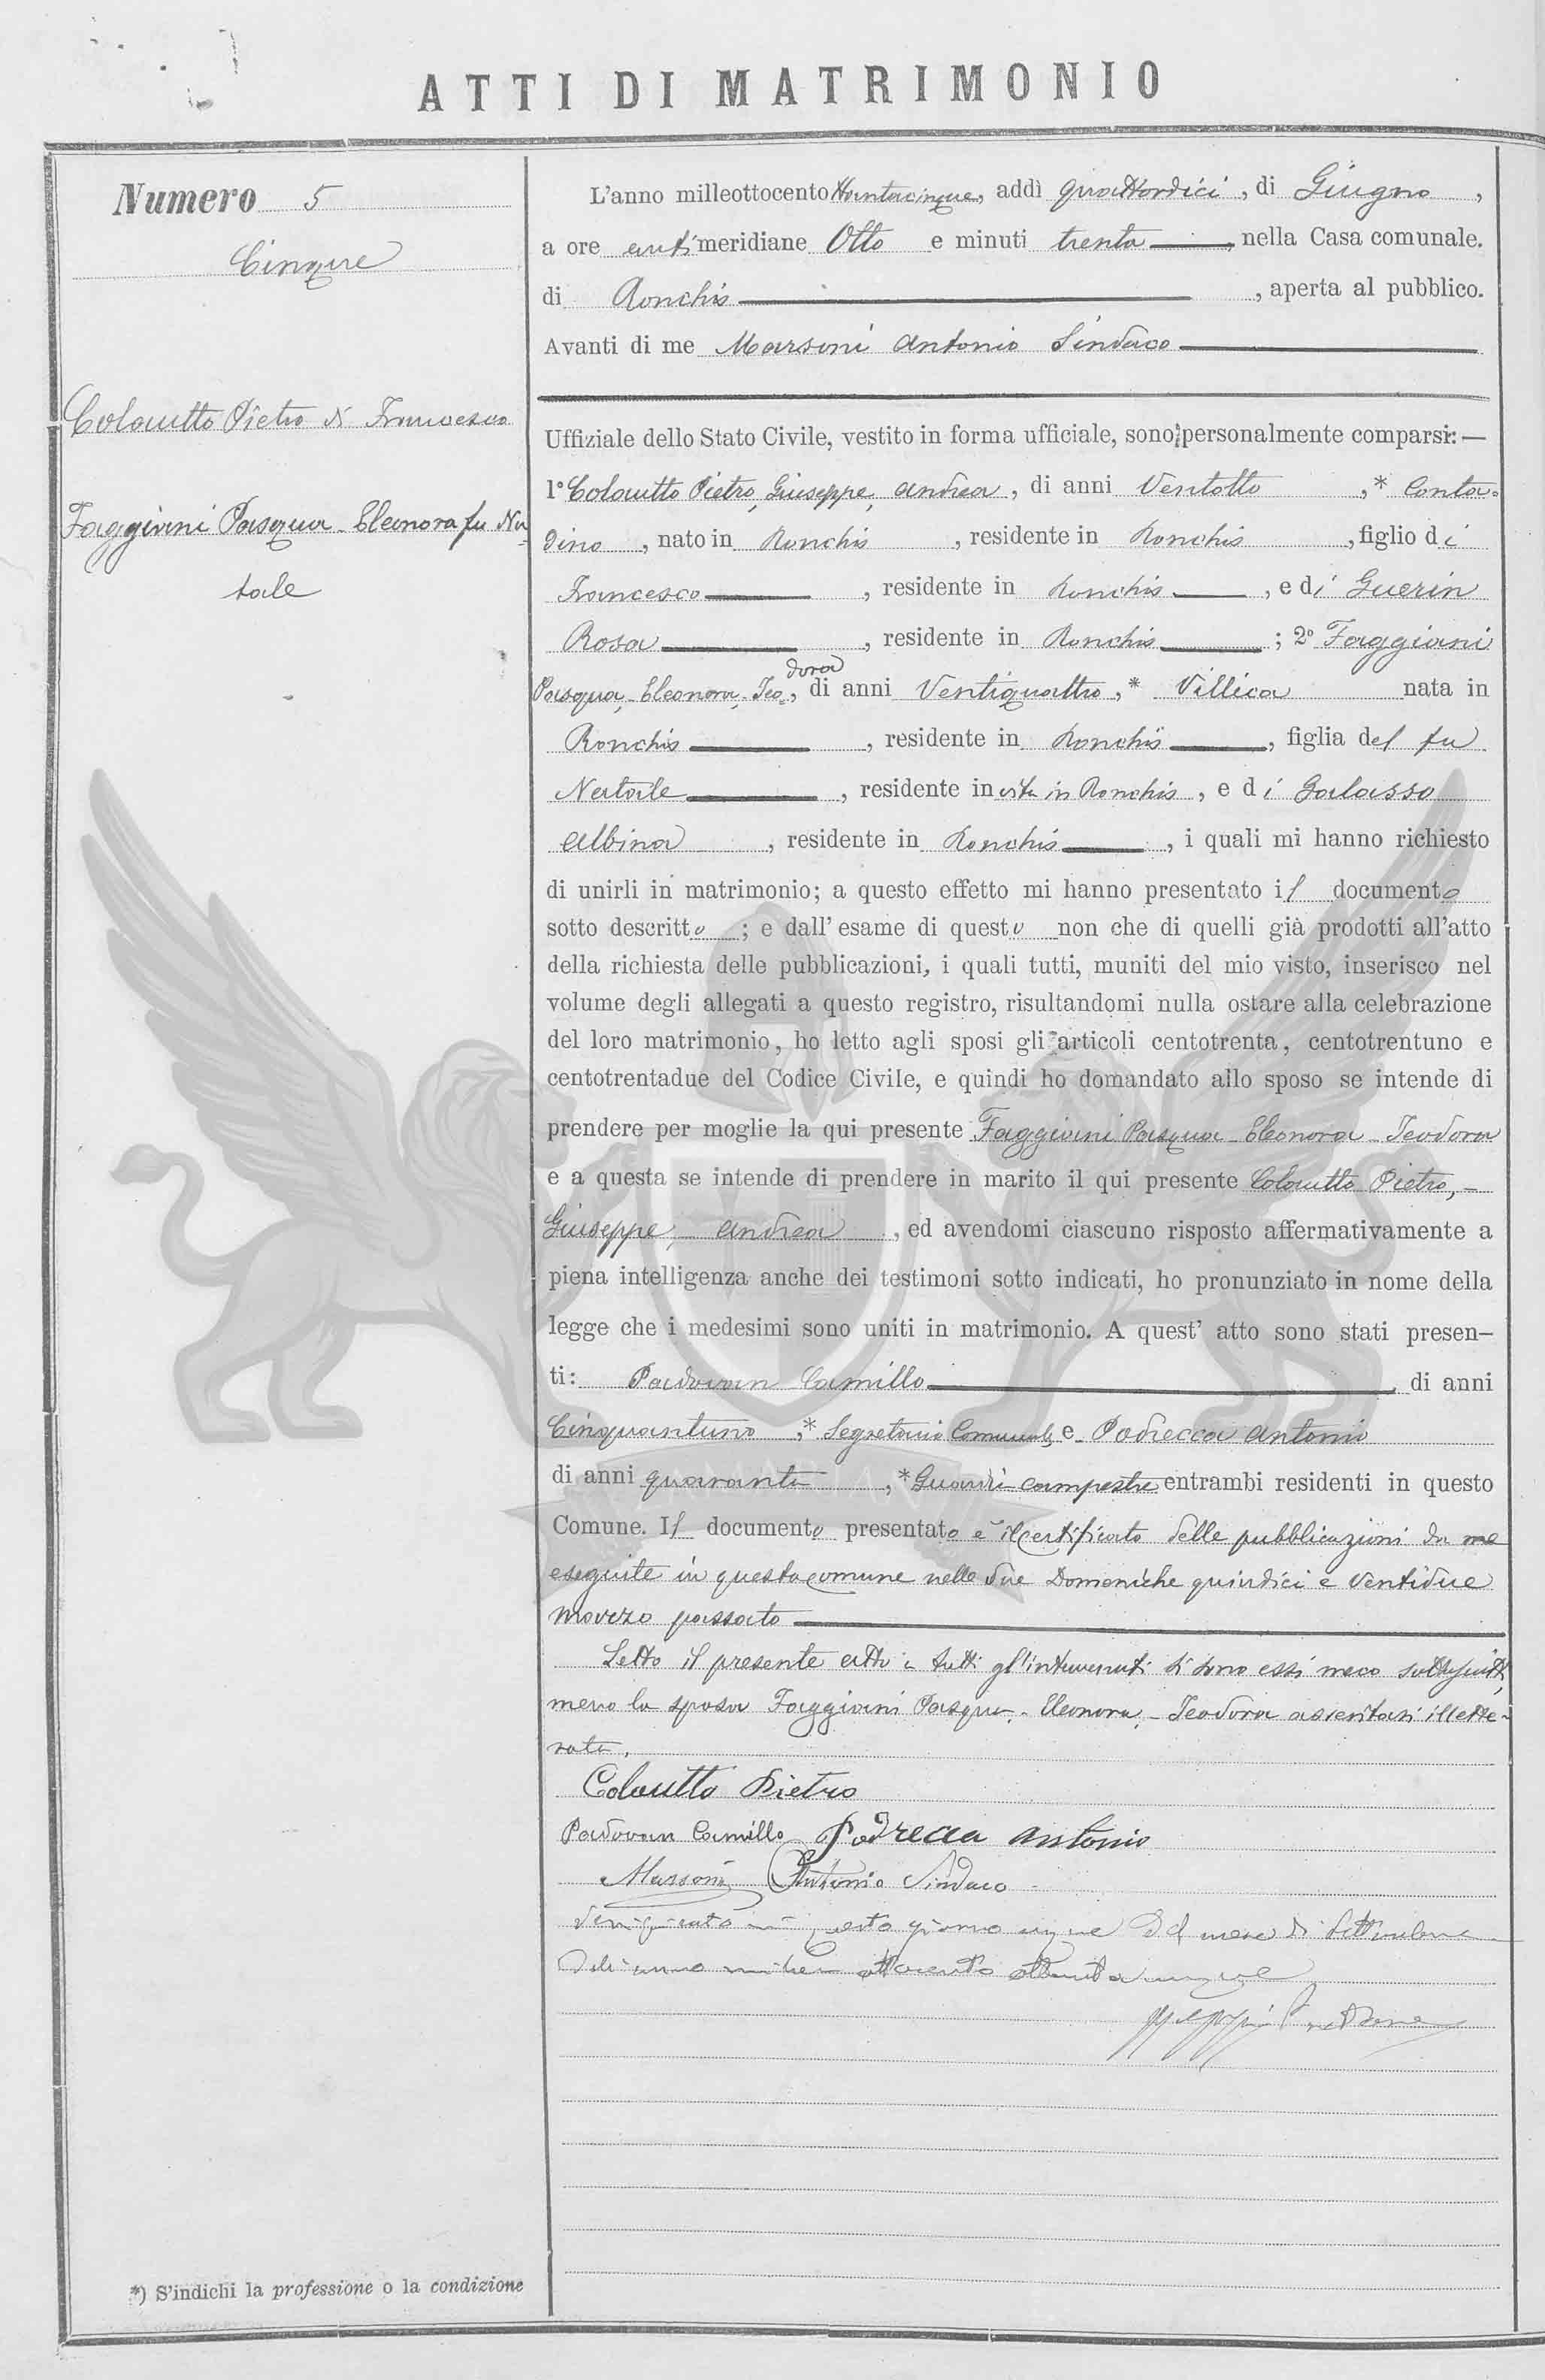 ATTI DI MATRIMONIO
Numero 5
Cinque
Colautto Pietro di Francesco
Faggiani Pasqua - Eleonora fu Na-
tale
L'anno milleottocento ottantacinque, addì quattordici, di Giugno,
a ore antimeridiane Otto e minuti trenta, nella Casa comunale.
di Ronchis, aperta al pubblico.
Avanti di me Marsoni Antonio Sindaco
Uffiziale dello Stato Civile, vestito in forma ufficiale, sono personalmente comparsi: —
1° Colautto Pietro, Giuseppe, Andrea, di anni Ventotto,* Conta-
dino, nato in Ronchis, residente in Ronchis, figlio di
Francesco, residente in Ronchis, e di Guerin
Rosa, residente in Ronchis; 2° Faggiani
Pasqua, - Eleonora, Teodora, di anni Ventiquattro,* Villica nata in
Ronchis, residente in Ronchis, figlia del fu
Natale, residente in vita in Ronchis, e di Galasso
Albina, residente in Ronchis, i quali mi hanno richiesto
di unirli in matrimonio; a questo effetto mi hanno presentato il documento
sotto descritto; e dall'esame di questo non che di quelli già prodotti all'atto
della richiesta delle pubblicazioni, i quali tutti, muniti del mio visto, inserisco nel
volume degli allegati a questo registro, risultandomi nulla ostare alla celebrazione
del loro matrimonio, ho letto agli sposi gli articoli centotrenta, centotrentuno e
centotrentadue del Codice Civile, e quindi ho domandato allo sposo se intende di
prendere per moglie la qui presente Faggiani Pasqua - Eleonora - Teodora
e a questa se intende di prendere in marito il qui presente Colautto Pietro, -
Giuseppe, - Andrea, ed avendomi ciascuno risposto affermativamente a
piena intelligenza anche dei testimoni sotto indicati, ho pronunziato in nome della
legge che i medesimi sono uniti in matrimonio. A quest' atto sono stati presen-
ti: Padovan Camillo, di anni
Cinquantuno,* Segretario Comunale e Podrecca Antonio
di anni quaranta,* Guardia campestre entrambi residenti in questo
Comune. Il documento presentato è il certificato delle pubblicazioni da me
eseguite in questo comune nelle due Domeniche quindici e ventidue
marzo passato
Letto il presente atto a tutti gl'intervenuti si sono essi meco sottoscritti,
meno la sposa Faggiani Pasqua, - Eleonora, - Teodora asseritasi illette-
rata.
Colautto Pietro
Padovan Camillo Podrecca Antonio
Marsoni Antonio Sindaco
questo giorno cinque del mese di Settembre
Dell'anno mille ottocento ottanta cinque
*) S'indichi la professione o la condizione